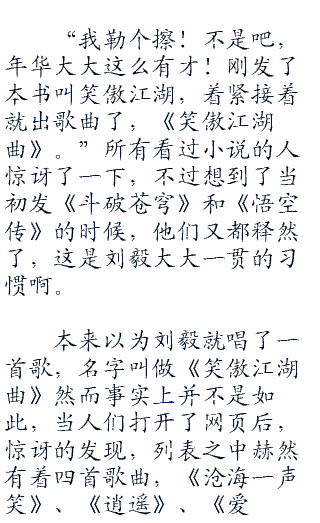 “我勒个擦！不是吧，
年华大大这么有才！刚发了
本书叫笑傲江湖，着紧接着
就出歌曲了，《笑傲江湖
曲》。”所有看过小说的人
惊讶了一下，不过想到了当
初发《斗破苍穹》和《悟空
传》的时候，他们又都释然
了，这是刘毅大大一贯的习
惯啊。
本来以为刘毅就唱了一
首歌，名字叫做《笑傲江湖
曲》然而事实上并不是如
此，当人们打开了网页后，
惊讶的发现，列表之中赫然
有着四首歌曲，《沧海一声
笑》、《逍遥》、《爱